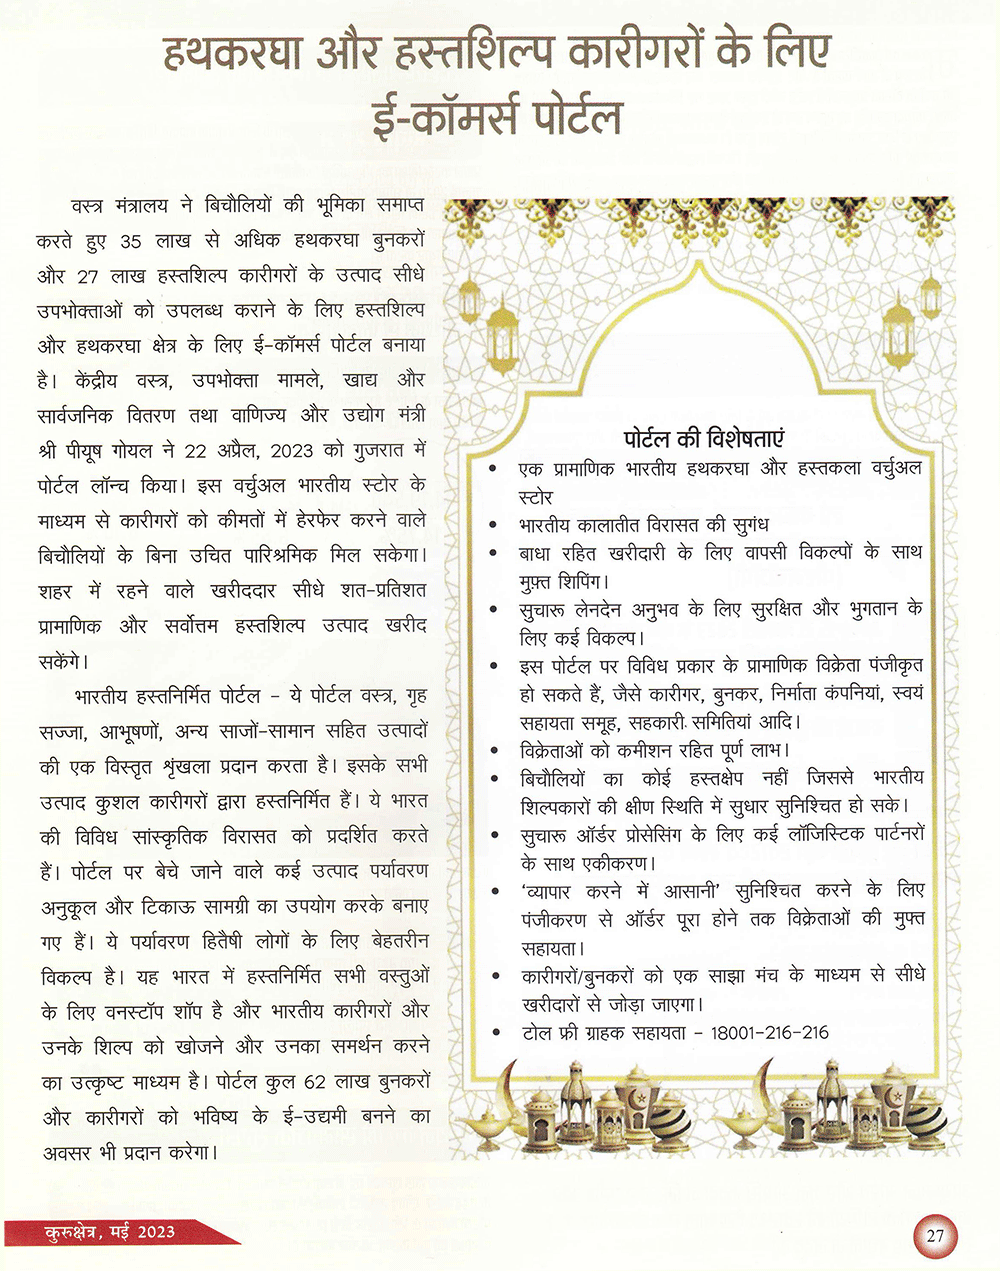 हथकरघा और हस्तशिल्प कारीगरों के लिए
ई-कॉमर्स पोर्टल
वस्त्र मंत्रालय ने बिचौलियों की भूमिका समाप्त
करते हुए 35 लाख से अधिक हथकरघा बुनकरों
और 27 लाख हस्तशिल्प कारीगरों के उत्पाद सीधे
उपभोक्ताओं को उपलब्ध कराने के लिए हस्तशिल्प
और हथकरघा क्षेत्र के लिए ई-कॉमर्स पोर्टल बनाया
है। केंद्रीय वस्त्र, उपभोक्ता मामले, खाद्य और
सार्वजनिक वितरण तथा वाणिज्य और उद्योग मंत्री
श्री पीयूष गोयल ने 22 अप्रैल, 2023 को गुजरात में
पोर्टल लॉन्च किया। इस वर्चुअल भारतीय स्टोर के
माध्यम से कारीगरों को कीमतों में हेरफेर करने वाले
बिचौलियों के बिना उचित पारिश्रमिक मिल सकेगा।
शहर में रहने वाले खरीददार सीधे शत-प्रतिशत
प्रामाणिक और सर्वोत्तम हस्तशिल्प उत्पाद खरीद
सकेंगे।
भारतीय हस्तनिर्मित पोर्टल - ये पोर्टल वस्त्र, गृह
सज्जा, आभूषणों, अन्य साजों-सामान सहित उत्पादों
की एक विस्तृत शृंखला प्रदान करता है। इसके सभी
उत्पाद कुशल कारीगरों द्वारा हस्तनिर्मित हैं। ये भारत
की विविध सांस्कृतिक विरासत को प्रदर्शित करते
हैं। पोर्टल पर बेचे जाने वाले कई उत्पाद पर्यावरण
अनुकूल और टिकाऊ सामग्री का उपयोग करके बनाए
गए हैं। ये पर्यावरण हितैषी लोगों के लिए बेहतरीन
विकल्प है। यह भारत में हस्तनिर्मित सभी वस्तुओं
के लिए वनस्टॉप शॉप है और भारतीय कारीगरों और
उनके शिल्प को खोजने और उनका समर्थन करने
का उत्कृष्ट माध्यम है। पोर्टल कुल 62 लाख बुनकरों
और कारीगरों को भविष्य के ई-उद्यमी बनने का
अवसर भी प्रदान करेगा।
पोर्टल की विशेषताएं
• एक प्रामाणिक भारतीय हथकरघा और हस्तकला वर्चुअल
स्टोर
• भारतीय कालातीत विरासत की सुगंध
• बाधा रहित खरीदारी के लिए वापसी विकल्पों के साथ
मुफ़्त शिपिंग।
• सुचारू लेनदेन अनुभव के लिए सुरक्षित और भुगतान के
लिए कई विकल्प।
• इस पोर्टल पर विविध प्रकार के प्रामाणिक विक्रेता पंजीकृत
हो सकते हैं, जैसे कारीगर, बुनकर, निर्माता कंपनियां, स्वयं
सहायता समूह, सहकारी समितियां आदि।
• विक्रेताओं को कमीशन रहित पूर्ण लाभ।
• बिचौलियों का कोई हस्तक्षेप नहीं जिससे भारतीय
शिल्पकारों की क्षीण स्थिति में सुधार सुनिश्चित हो सके।
• सुचारू ऑर्डर प्रोसेसिंग के लिए कई लॉजिस्टिक पार्टनरों
के साथ एकीकरण।
• ‘व्यापार करने में आसानी’ सुनिश्चित करने के लिए
पंजीकरण से ऑर्डर पूरा होने तक विक्रेताओं की मुफ्त
सहायता।
• कारीगरों/बुनकरों को एक साझा मंच के माध्यम से सीधे
खरीदारों से जोड़ा जाएगा।
• टोल फ्री ग्राहक सहायता - 18001-216-216
कुरुक्षेत्र, मई 2023
27